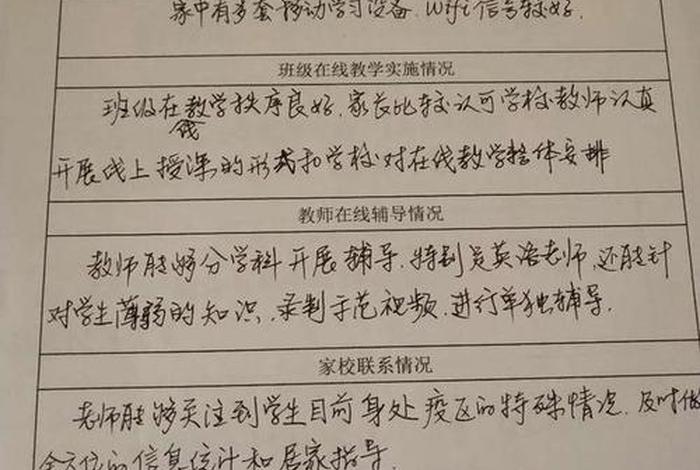 家中有多套移动学习设备.Wifi信号较好.
班级在线教学实施情况
班级在线教学秩序良好.家长比较认可学校教师认真
开展线上授课的形式和学校对在线教学整体安排
教师在线辅导情况
教师能够分学科开展辅导.特别是英语老师.还能针
对学生薄弱的知识.录制示范视频.进行单独辅导.
家校联系情况
老师能够关注到学生目前身处疫区的特殊情况.及时做
全方位的信息统计和居家指导.